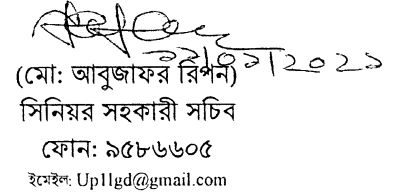 ২২/০৯/২০২১
(মো: আবুজাফর রিপন)
সিনিয়র সহকারী সচিব
ফোন: ৯৫৮৬৬০৫
ইমেইল: Up1lgd@gmail.com